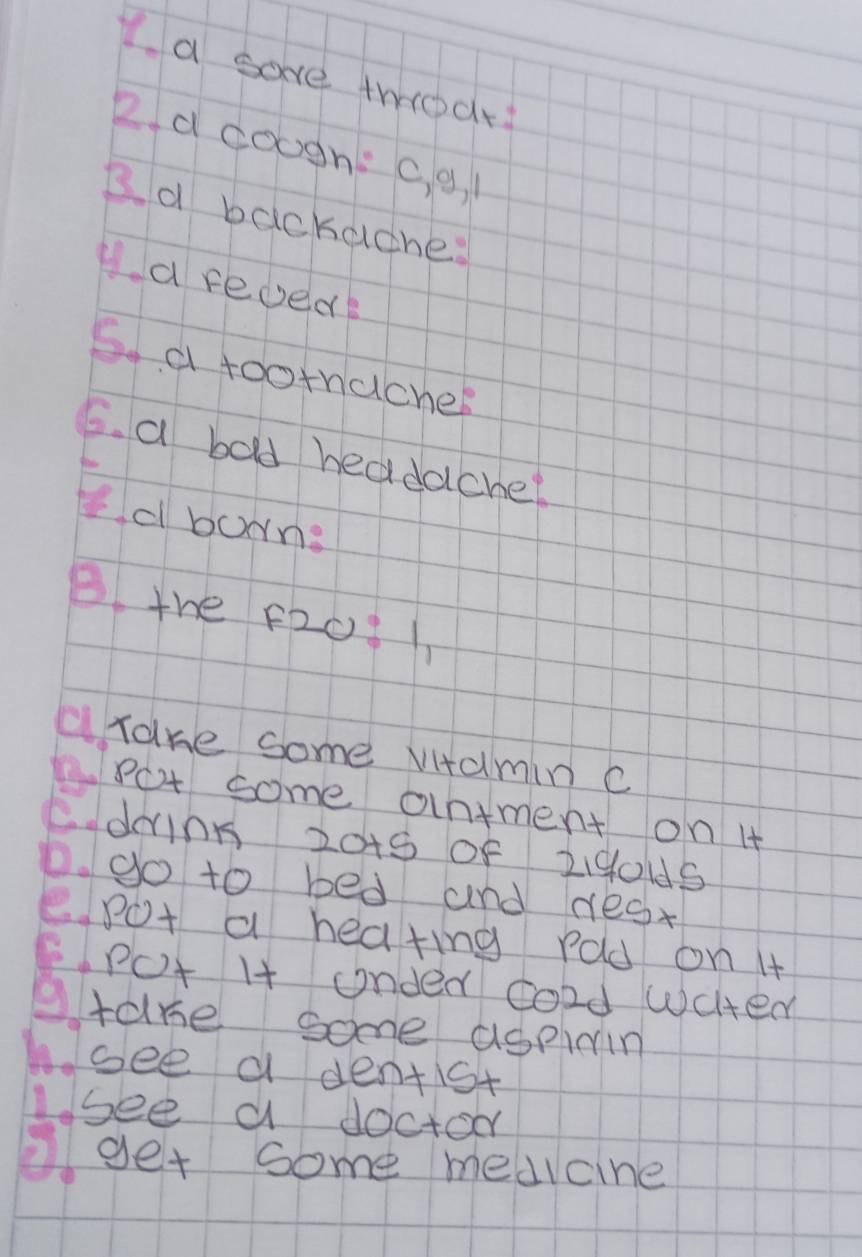 1. a sore throat:
2. a cough: c, g, i
3. a backache:
4. a fever:
5. a toothache:
6. a bad headache:
7. a burn:
8. the flu: i,
a. Take some vitamin c
B. Put some ointment on it
c. drink lots of liquids
D. go to bed and rest
e. put a heating pad on it
f. put it under cold water
g. take some aspirin
h. see a dentist
i. see a doctor
J. get some medicine